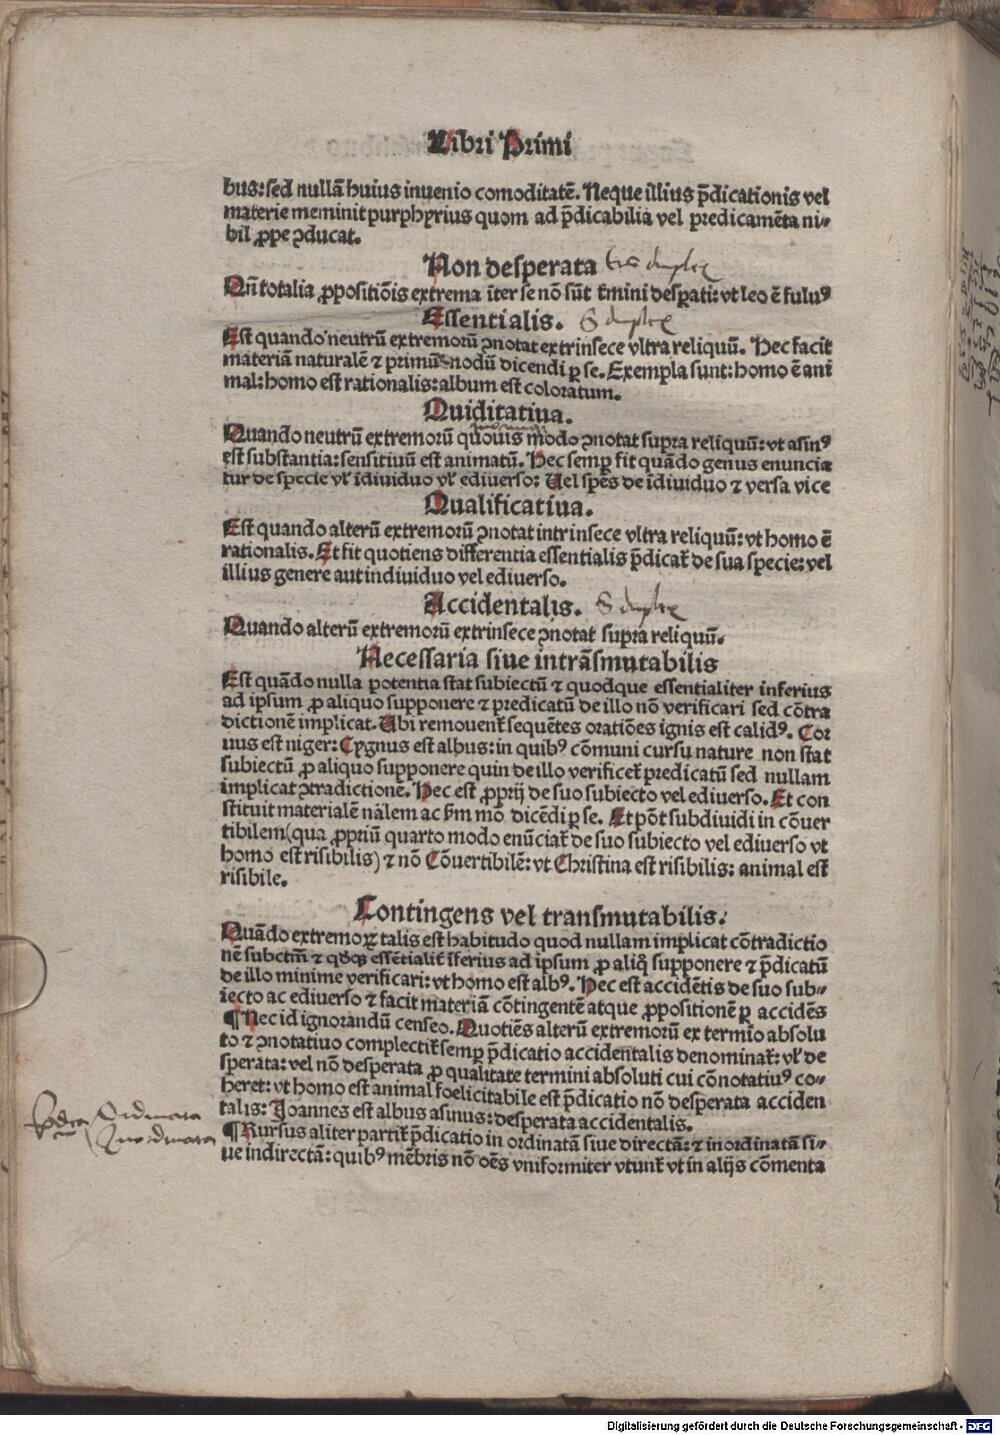 Libri Primi
bus: sed nullā huius inuenio comoditatē. Neque illius p̄dicationis vel
materie meminit purphyrius quom ad p̄dicabilia vel predicamēta ni-
hil ꝓpe ꝯducat.
Non desperata
Qn̄ totalia ꝓpositiōis extrema īter se nō sūt t̄mini desꝑati: vt leo ē fuluꝰ
Essentialis. duplex
Est quando neutrū extremorū ꝯnotat extrinsece vltra reliquū. Hec facit
materiā naturalē ⁊ primū modū dicendi ꝑ se. Exempla sunt: homo ē ani
mal: homo est rationalis: album est coloratum.
Quiditatiua.
Quando neutrū extremorū quouis modo ꝯnotat supra reliquū: vt asinꝰ
est substantia: sensitiuū est animatū. Hec semꝑ fit quādo genus enuncia
tur de specie vĺ īdiuiduo vĺ ediuerso: Uel spēs de īdiuiduo ⁊ versa vice
Qualificatiua.
Est quando alterū extremorū ꝯnotat intrinsece vltra reliquū: vt homo ē
rationalis. Et fit quotiens differentia essentialis p̄dicat̄ de sua specie: vel
illius genere aut indiuiduo vel ediuerso.
Accidentalis. duplex
Quando alterū extremorū extrinsece ꝯnotat supra reliquū.
Necessaria siue intrāsmutabilis
Est quādo nulla potentia stat subiectū ⁊ quodque essentialiter inferius
ad ipsum ꝓ aliquo supponere ⁊ predicatū de illo nō verificari sed cōtra
dictionē implicat. Ubi remouent̄ sequētes oratiōes ignis est calidꝰ. Cor
uus est niger: Cygnus est albus: in quibꝰ cōmuni cursu nature non stat
subiectū ꝓ aliquo supponere quin de illo verificet̄ predicatū sed nullam
implicat ꝯtradictionē. Hec est ꝓprij de suo subiecto vel ediuerso. Et con
stituit materialē nālem ac scḋm mō dicēdi ꝑ se. Et pōt subdiuidi in cōuer
tibilem (qua ꝓpriū quarto modo enūciat̄ de suo subiecto vel ediuerso vt
homo est risibilis) ⁊ nō Cōuertibilē: vt Christina est risibilis: animal est
risibile.
Contingens vel transmutabilis.
Quādo extremoꝝ talis est habitudo quod nullam implicat cōtradictio
nē subctm̄ ⁊ qd̄qꝫ essētialit̄ īferius ad ipsum ꝓ aliq̊ supponere ⁊ p̄dicatū
de illo minime verificari: vt homo est albꝰ. Hec est accidētis de suo sub-
iecto ac ediuerso ⁊ facit materiā cōtingentē atque ꝓpositionē ꝑ accidēs
¶ Nec id ignorandū censeo. Quotiēs alterū extremorū ex termīo absolu
to ⁊ ꝯnotatiuo complectit̄ semꝑ p̄dicatio accidentalis denominat̄: vĺ de
sperata: vel nō desperata ꝓ qualitate termini absoluti cui cōnotatiuꝰ co-
heret: vt homo est animal foelicitabile est p̄dicatio nō desperata acciden
talis: Joannes est albus asinus: desperata accidentalis.
¶ Rursus aliter partit̄ p̄dicatio in ordinatā siue directā: ⁊ inordinatā si-
ue indirectā: quibꝰ mēbris nō oēs vniformiter vtunt̄ vt in alijs cōmenta
Ordinata
Inordinata
Digitalisierung gefördert durch die Deutsche Forschungsgemeinschaft - DFG